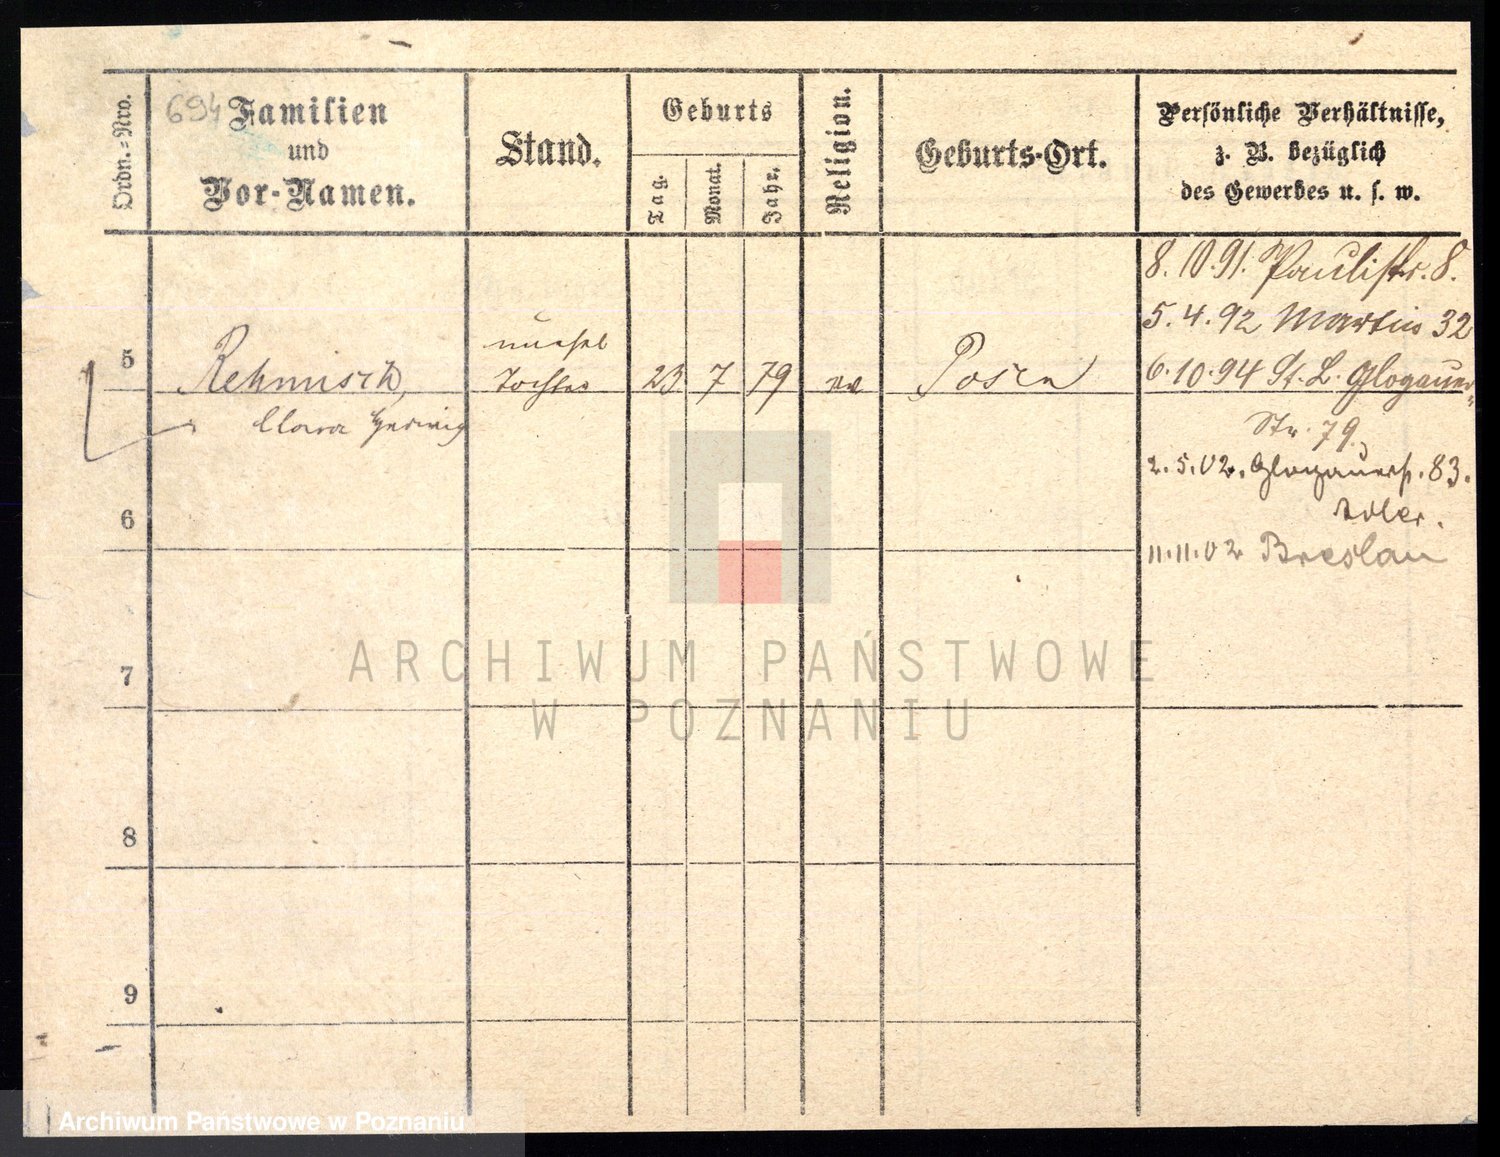 694
Ordn.-Nro.
Familien
und
Vor-Namen.
Stand.
Geburts
Tag.
Monat.
Jahr.
Religion.
Geburts-Ort.
Persönliche Verhältnisse,
z. B. bezüglich
des Gewerbes u. s. w.
8.10.91. Paulistr. 8.
5.4.92 Martin 32
5
Rehmisch,
unehel
Tochter
23 7 79
ev
Posen
6.10.94 St. L. Glogauer
Clara Hedwig
Str. 79.
2.5.02. Glogauerst. 83.
Adler.
6
11.11.02 Breslau
ARCHIWUM PAŃSTWOWE
W POZNANIU
7
8
9
Archiwum Państwowe w Poznaniu